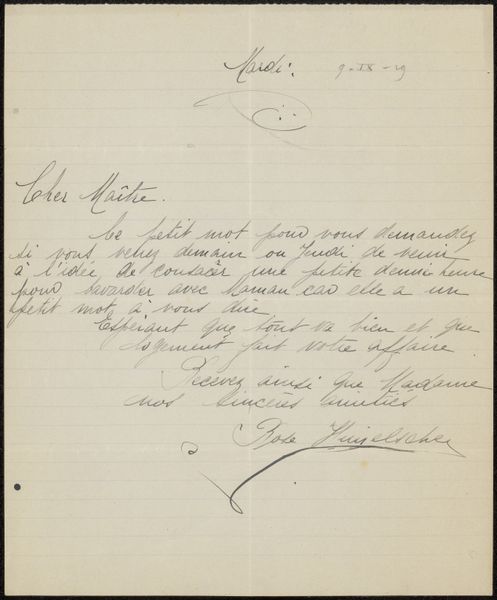 Mardi. 9-IX-29
Cher Maître.
Ce petit mot pour vous demandez
si vous venez demain ou Jeudi de venir
à l'idée de consacer une petite demi heure
pour bavarder avec Maman car elle a un
petit mot à vous dire
Espérant que tout va bien et que
logement fait votre affaire.
Recevez ainsi que Madame
nos sincères amitiés
Rose